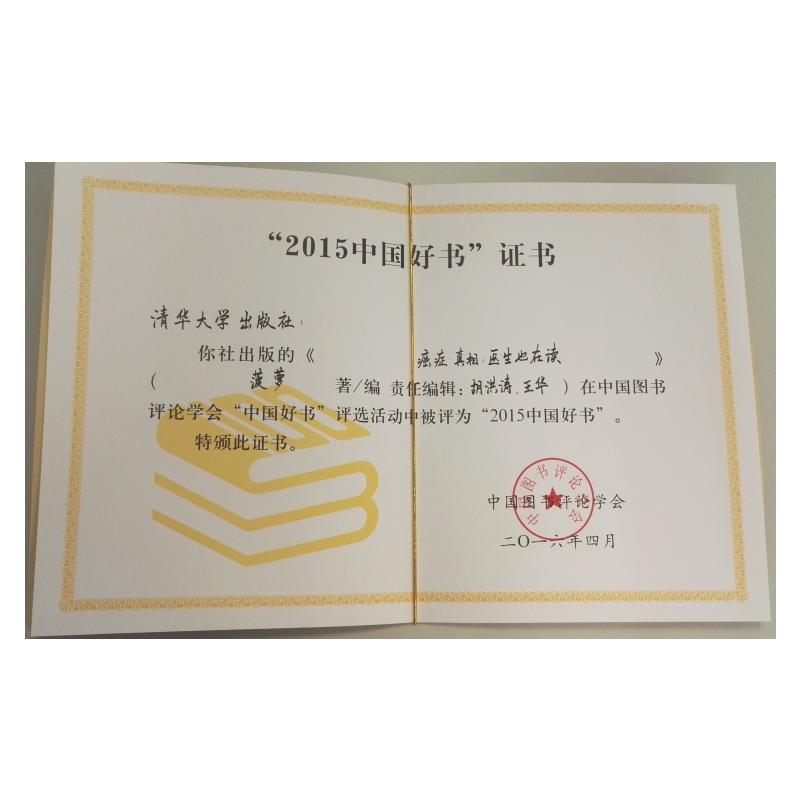 “2015中国好书”证书
清华大学出版社：
你社出版的《 癌症·真相：医生也在读 》
( 菠萝 著/编 责任编辑：胡洪涛、王华 ) 在中国图书
评论学会“中国好书”评选活动中被评为“2015中国好书”。
特颁此证书。
中国图书评论学会
中国图书评论学会
二〇一六年四月